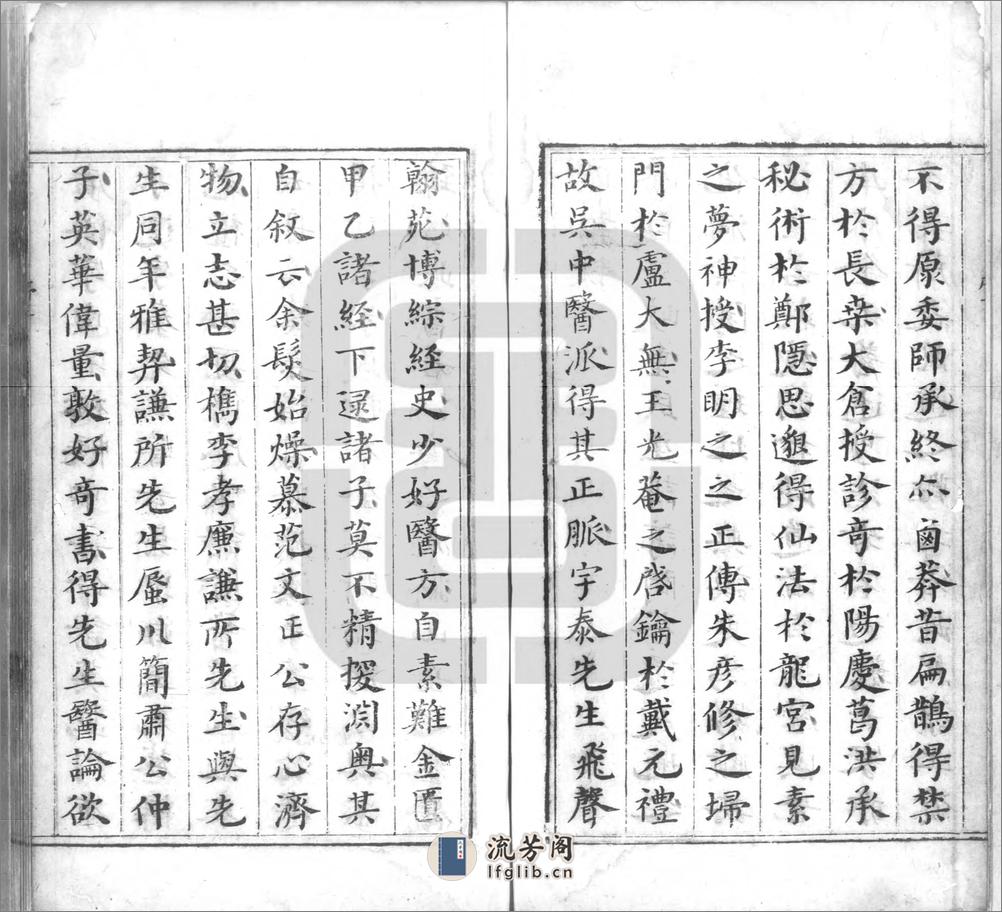 不得原委師承終亦鹵莽昔扁鵲得禁
方於長桑大倉授診奇於陽慶葛洪承
秘術於鄭隱思邈得仙法於龍宮見素
之夢神授李明之之正傳朱彥修之埽
門於盧大無王光菴之啓鑰於戴元禮
故吳中醫派得其正脈宇泰先生飛聲
翰苑博綜經史少好醫方自素難金匱
甲乙諸經下逯諸子莫不精援淵奧其
自敘云余髮始燥慕范文正公存心濟
物立志甚切檇李孝廉謙所先生與先
生同年雅契謙所先生蜃川簡肅公仲
子英華偉量敦好奇書得先生醫論欲
流芳阁
lfglib.cn